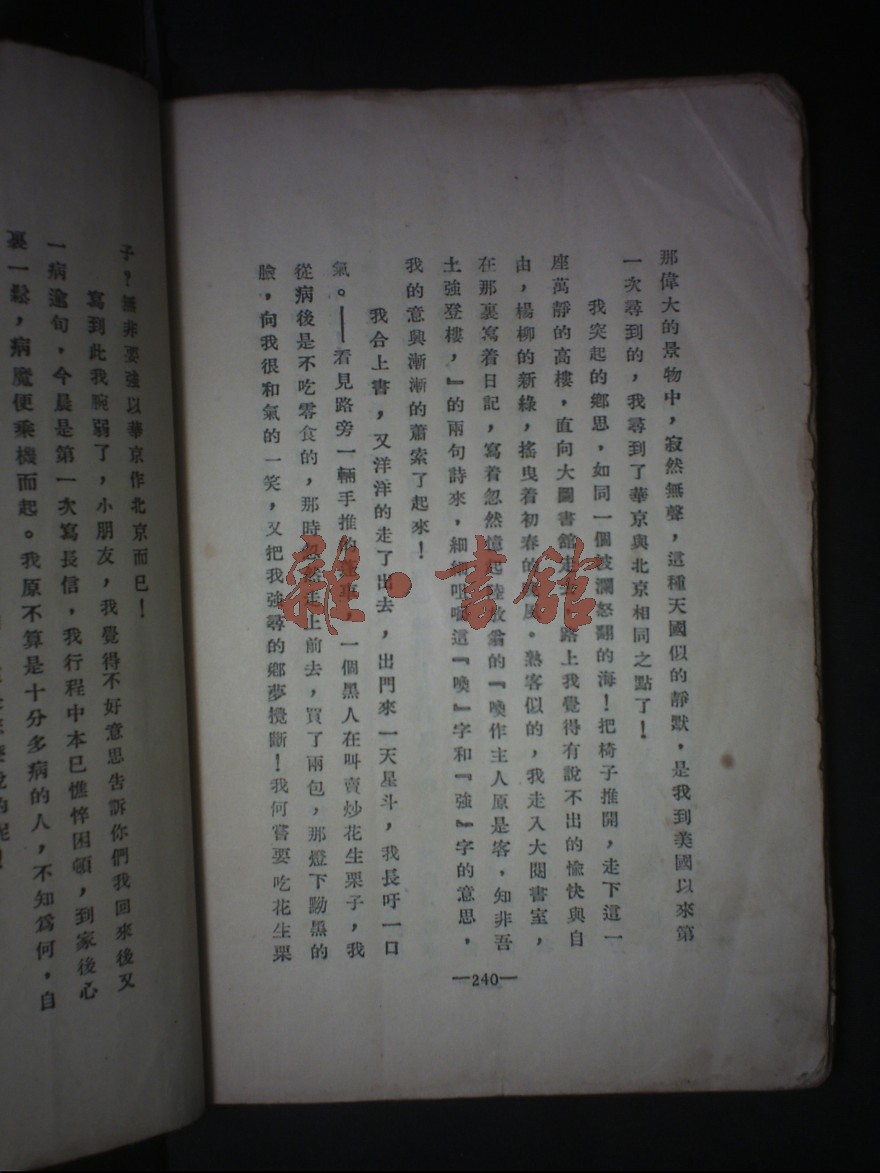 那偉大的景物中，寂然無聲，這種天國似的靜默，是我到美國以來第
一次尋到的，我尋到了華京與北京相同之點了！
我突起的鄉思，如同一個波瀾怒翻的海！把椅子推開，走下這一
座萬靜的高樓，直向大圖書館走去。路上我覺得有說不出的愉快與自
由，楊柳的新綠，搖曳着初春的晚風。熟客似的，我走入大閱書室，
在那裏寫着日記，寫着忽然憶起陸放翁的『喚作主人原是客，知非吾
土強登樓，』的兩句詩來，細細咀嚼這『喚』字和『強』字的意思，
我的意興漸漸的蕭索了起來！
我合上書，又洋洋的走了出去，出門來一天星斗，我長吁一口
氣。——看見路旁一輛手推的篷車，一個黑人在叫賣炒花生栗子，我
從病後是不吃零食的，那時忽然走上前去，買了兩包，那燈下黝黑的
臉，向我很和氣的一笑，又把我強尋的鄉夢攪斷！我何嘗要吃花生栗
—240—
子？無非要強以華京作北京而已！
寫到此我腕弱了，小朋友，我覺得不好意思告訴你們我回來後又
一病逾旬，今晨是第一次寫長信，我行程中本已憔悴困頓，到家後心
裏一鬆，病魔便乘機而起。我原不算是十分多病的人，不知爲何，自
雜·書館